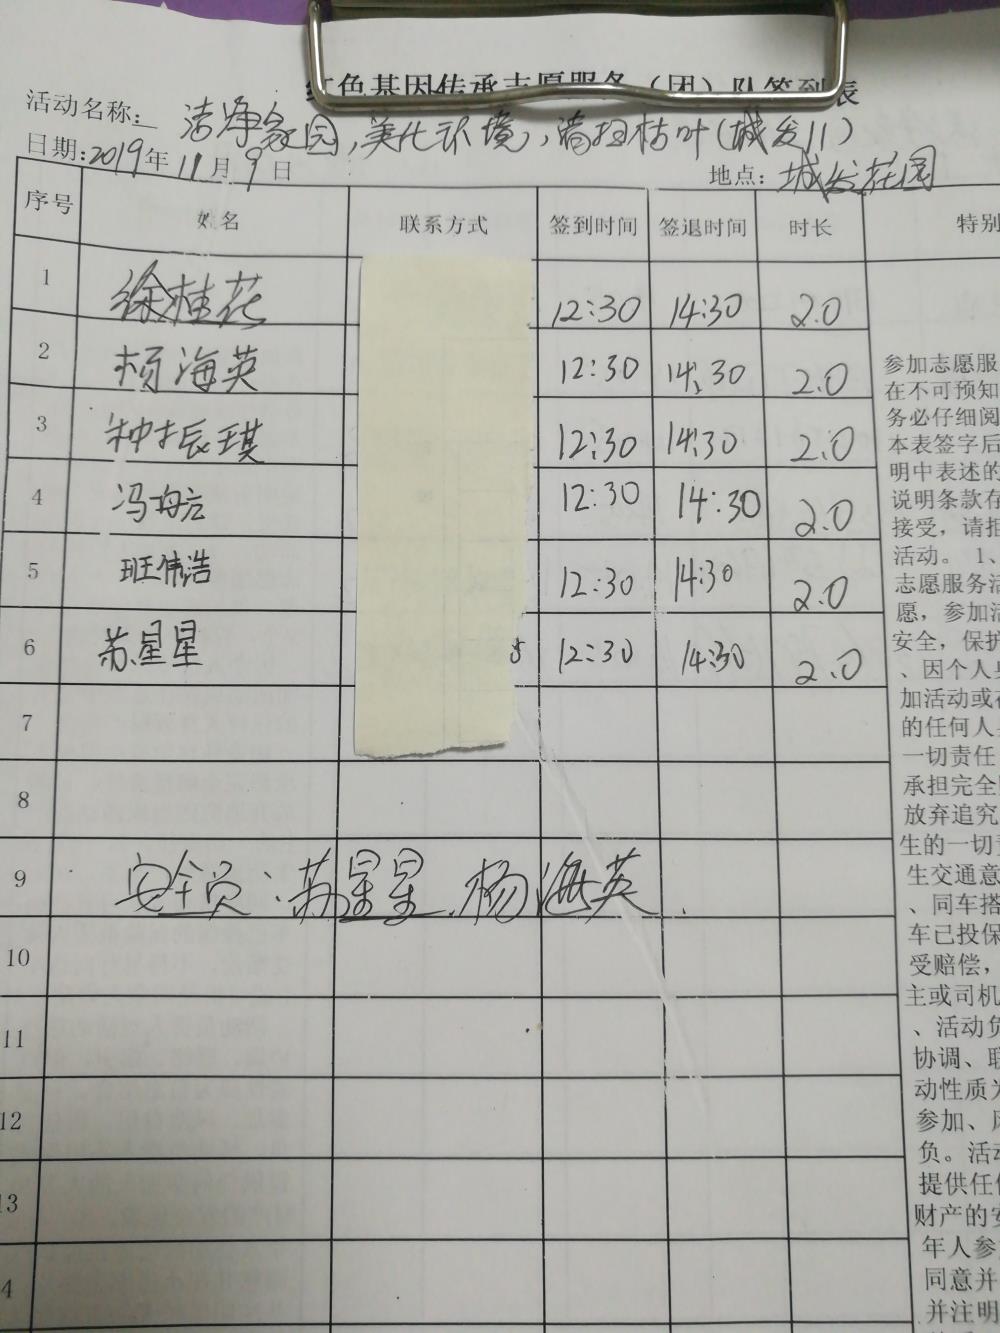 红色基因传承志愿服务（团）队签到表
活动名称: 洁净家园,美化环境,清扫枯叶(城发11)
日期:2019年11月9日 地点:城发花园
序号 姓名 联系方式 签到时间 签退时间 时长 特别
1 徐桂花 12:30 14:30 2.0
2 杨海英 12:30 14:30 2.0
3 钟振琪 12:30 14:30 2.0
4 冯 12:30 14:30 2.0
5 班伟浩 12:30 14:30 2.0
6 苏星星 12:30 14:30 2.0
7
8
9 安全员:苏星星.杨海英.
10
11
12
13
4
参加志愿服
在不可预知
务必仔细阅
本表签字后
明中表述的
说明条款存
接受，请拒
活动。 1、
志愿服务活
愿，参加活
安全，保护
、因个人身
加活动或在
的任何人身
一切责任
承担完全
放弃追究
生的一切责
生交通意
、同车搭
车已投保
受赔偿，
主或司机
、活动负
协调、联
动性质为
参加、
负。活动
提供任何
财产的安
年人参
同意并
并注明